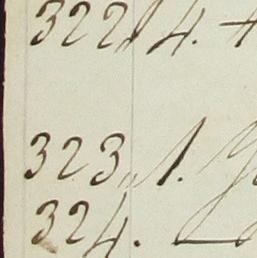 322, 4.
323, 1.
324.